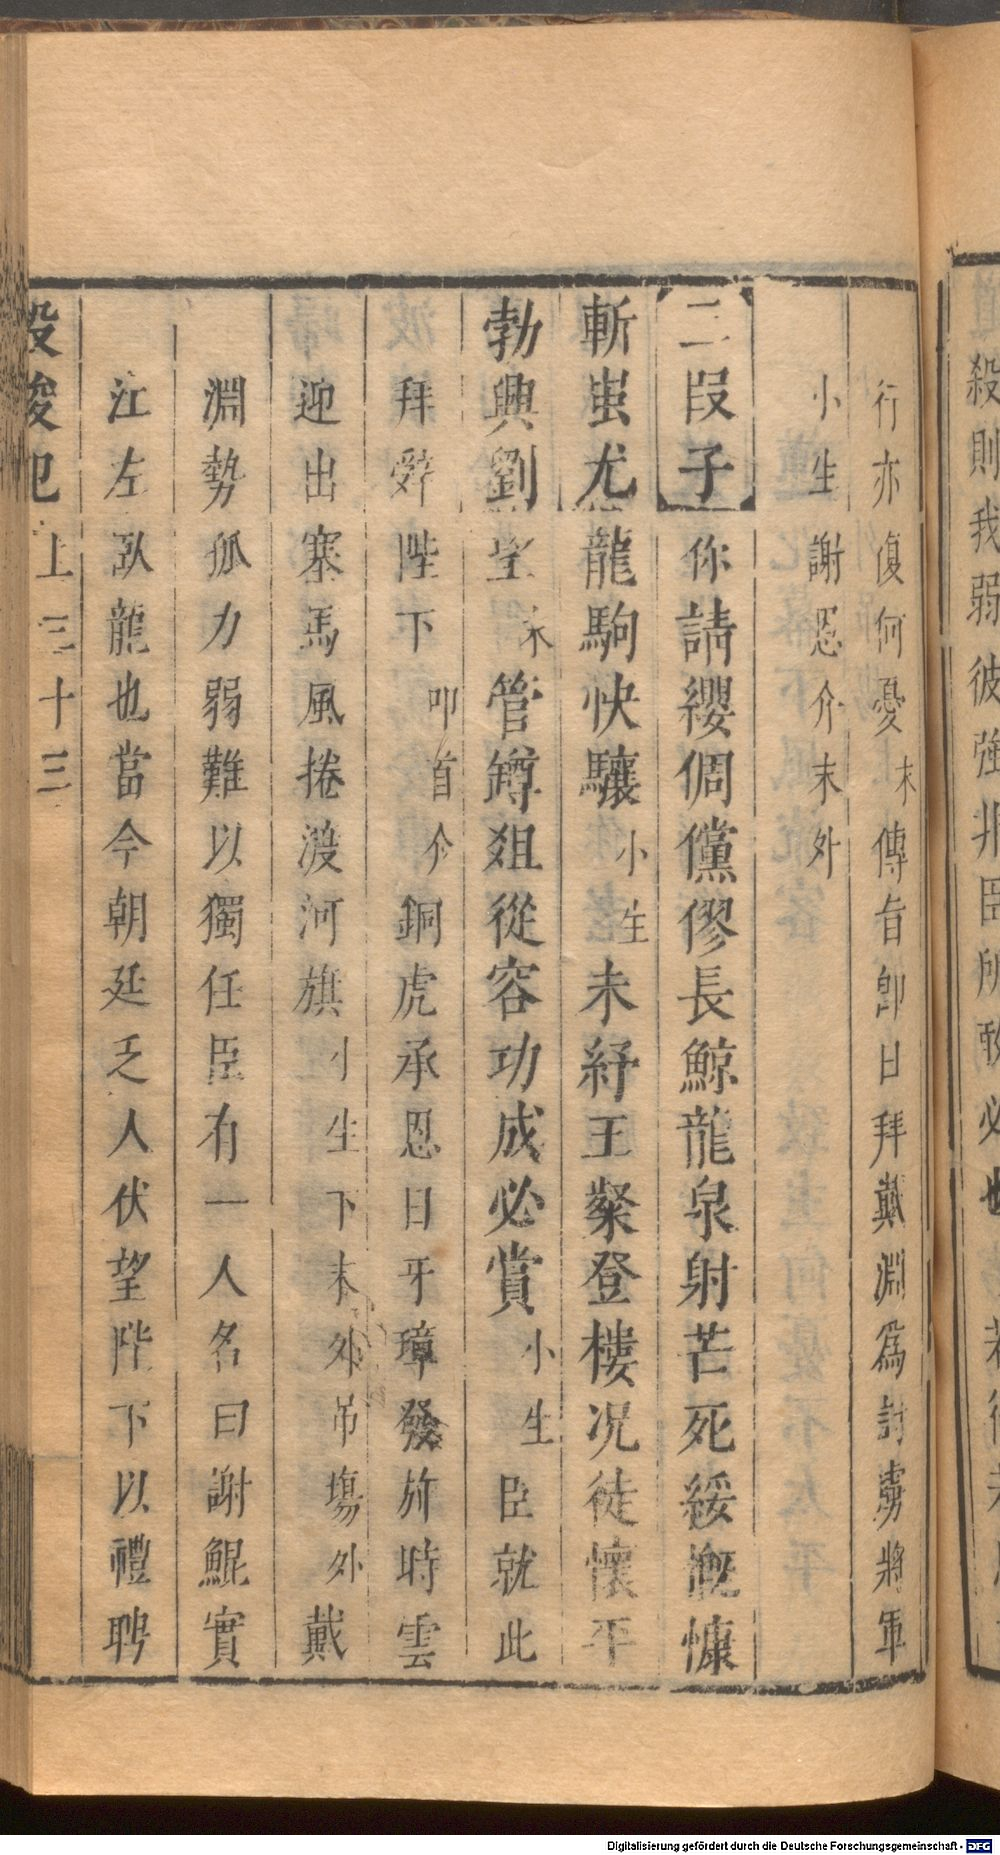 殺則我弱彼強非臣所敢必也
行亦復何憂末傳旨卽日拜戴淵爲討虜將軍
小生謝恩介末外
二段子你請纓倜儻僇長鯨龍泉射芒死綏慨慷
斬蚩尤龍駒快驤小生未紓王粲登樓况徒懷平
勃興劉望末管鐏爼從容功成必賞小生臣就此
拜辤陛下叩首介銅虎承恩日牙璋發旂時雲
迎出寨馬風捲渡河旗小生下末外吊塲外戴
淵勢孤力弱難以獨任臣有一人名曰謝鯤實
江左臥龍也當今朝廷乏人伏望陛下以禮聘
投梭记上三十三
Digitalisierung gefördert durch die Deutsche Forschungsgemeinschaft - DFG